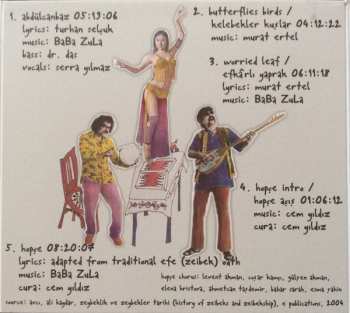 1. abdülcanbaz 05:13:06
lyrics: turhan selçuk
music: BaBa ZuLa
bass: dr. das
vocals: serra yılmaz
2. butterflies birds /
kelebekler kuşlar 04:12:22
music: murat ertel
3. worried leaf /
efkârlı yaprak 06:11:18
lyrics: murat ertel
music: BaBa ZuLa
4. hopçe intro /
hopçe açış 01:06:12
music: cem yıldız
cura: cem yıldız
5. hopçe 08:20:07
lyrics: adapted from traditional efe (zeibek) oath
music: BaBa ZuLa
cura: cem yıldız
hopçe chorus: levent akman, coşar kamçı, gülşen akman,
elena hristova, ahmetcan taşdemir, bahar sarah, esma rahin
source: avcı, ali haydar, zeybeklik ve zeybekler tarihi (history of zeibeks and zeibekship), e publications, 2004